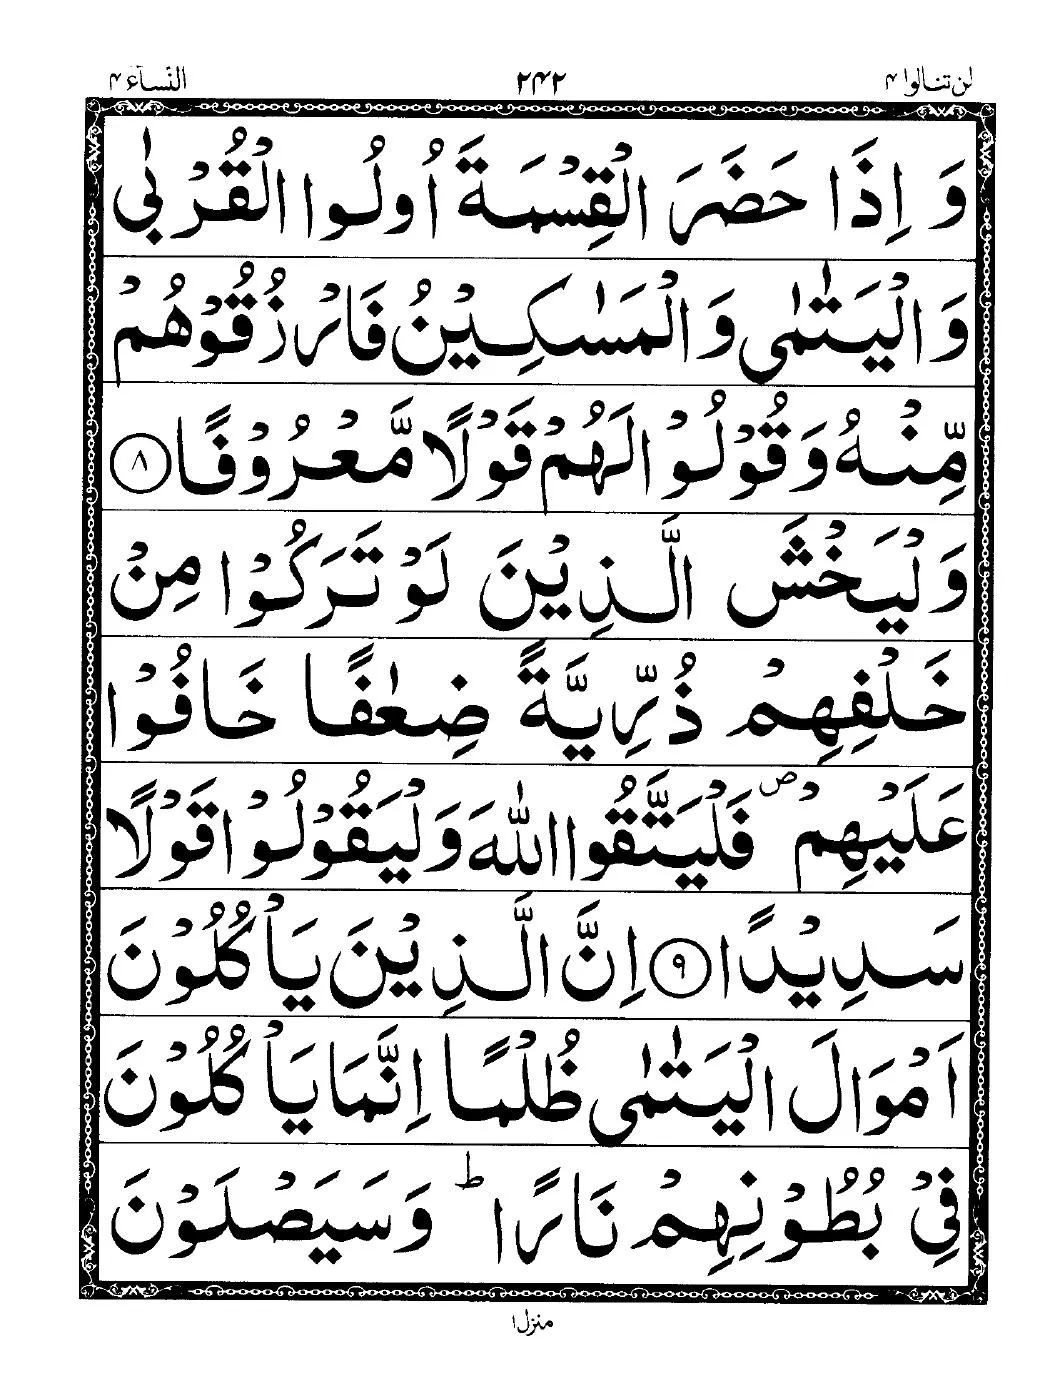 لن تنالوا ۴
۲۴۲
النسآء ۴
وَ اِذَا حَضَرَ الْقِسْمَةَ اُولُوا الْقُرْبٰى
وَالْيَتٰمٰى وَالْمَسٰكِيْنُ فَارْزُقُوْهُمْ
مِّنْهُ وَقُوْلُوْا لَهُمْ قَوْلًا مَّعْرُوْفًا ۸
وَلْيَخْشَ الَّذِيْنَ لَوْ تَرَكُوْا مِنْ
خَلْفِهِمْ ذُرِّيَّةً ضِعٰفًا خَافُوْا
عَلَيْهِمْ ص فَلْيَتَّقُوا اللّٰهَ وَلْيَقُوْلُوْا قَوْلًا
سَدِيْدًا ۹ اِنَّ الَّذِيْنَ يَاْكُلُوْنَ
اَمْوَالَ الْيَتٰمٰى ظُلْمًا اِنَّمَا يَاْكُلُوْنَ
فِيْ بُطُوْنِهِمْ نَارًا ط وَسَيَصْلَوْنَ
منزل ۱